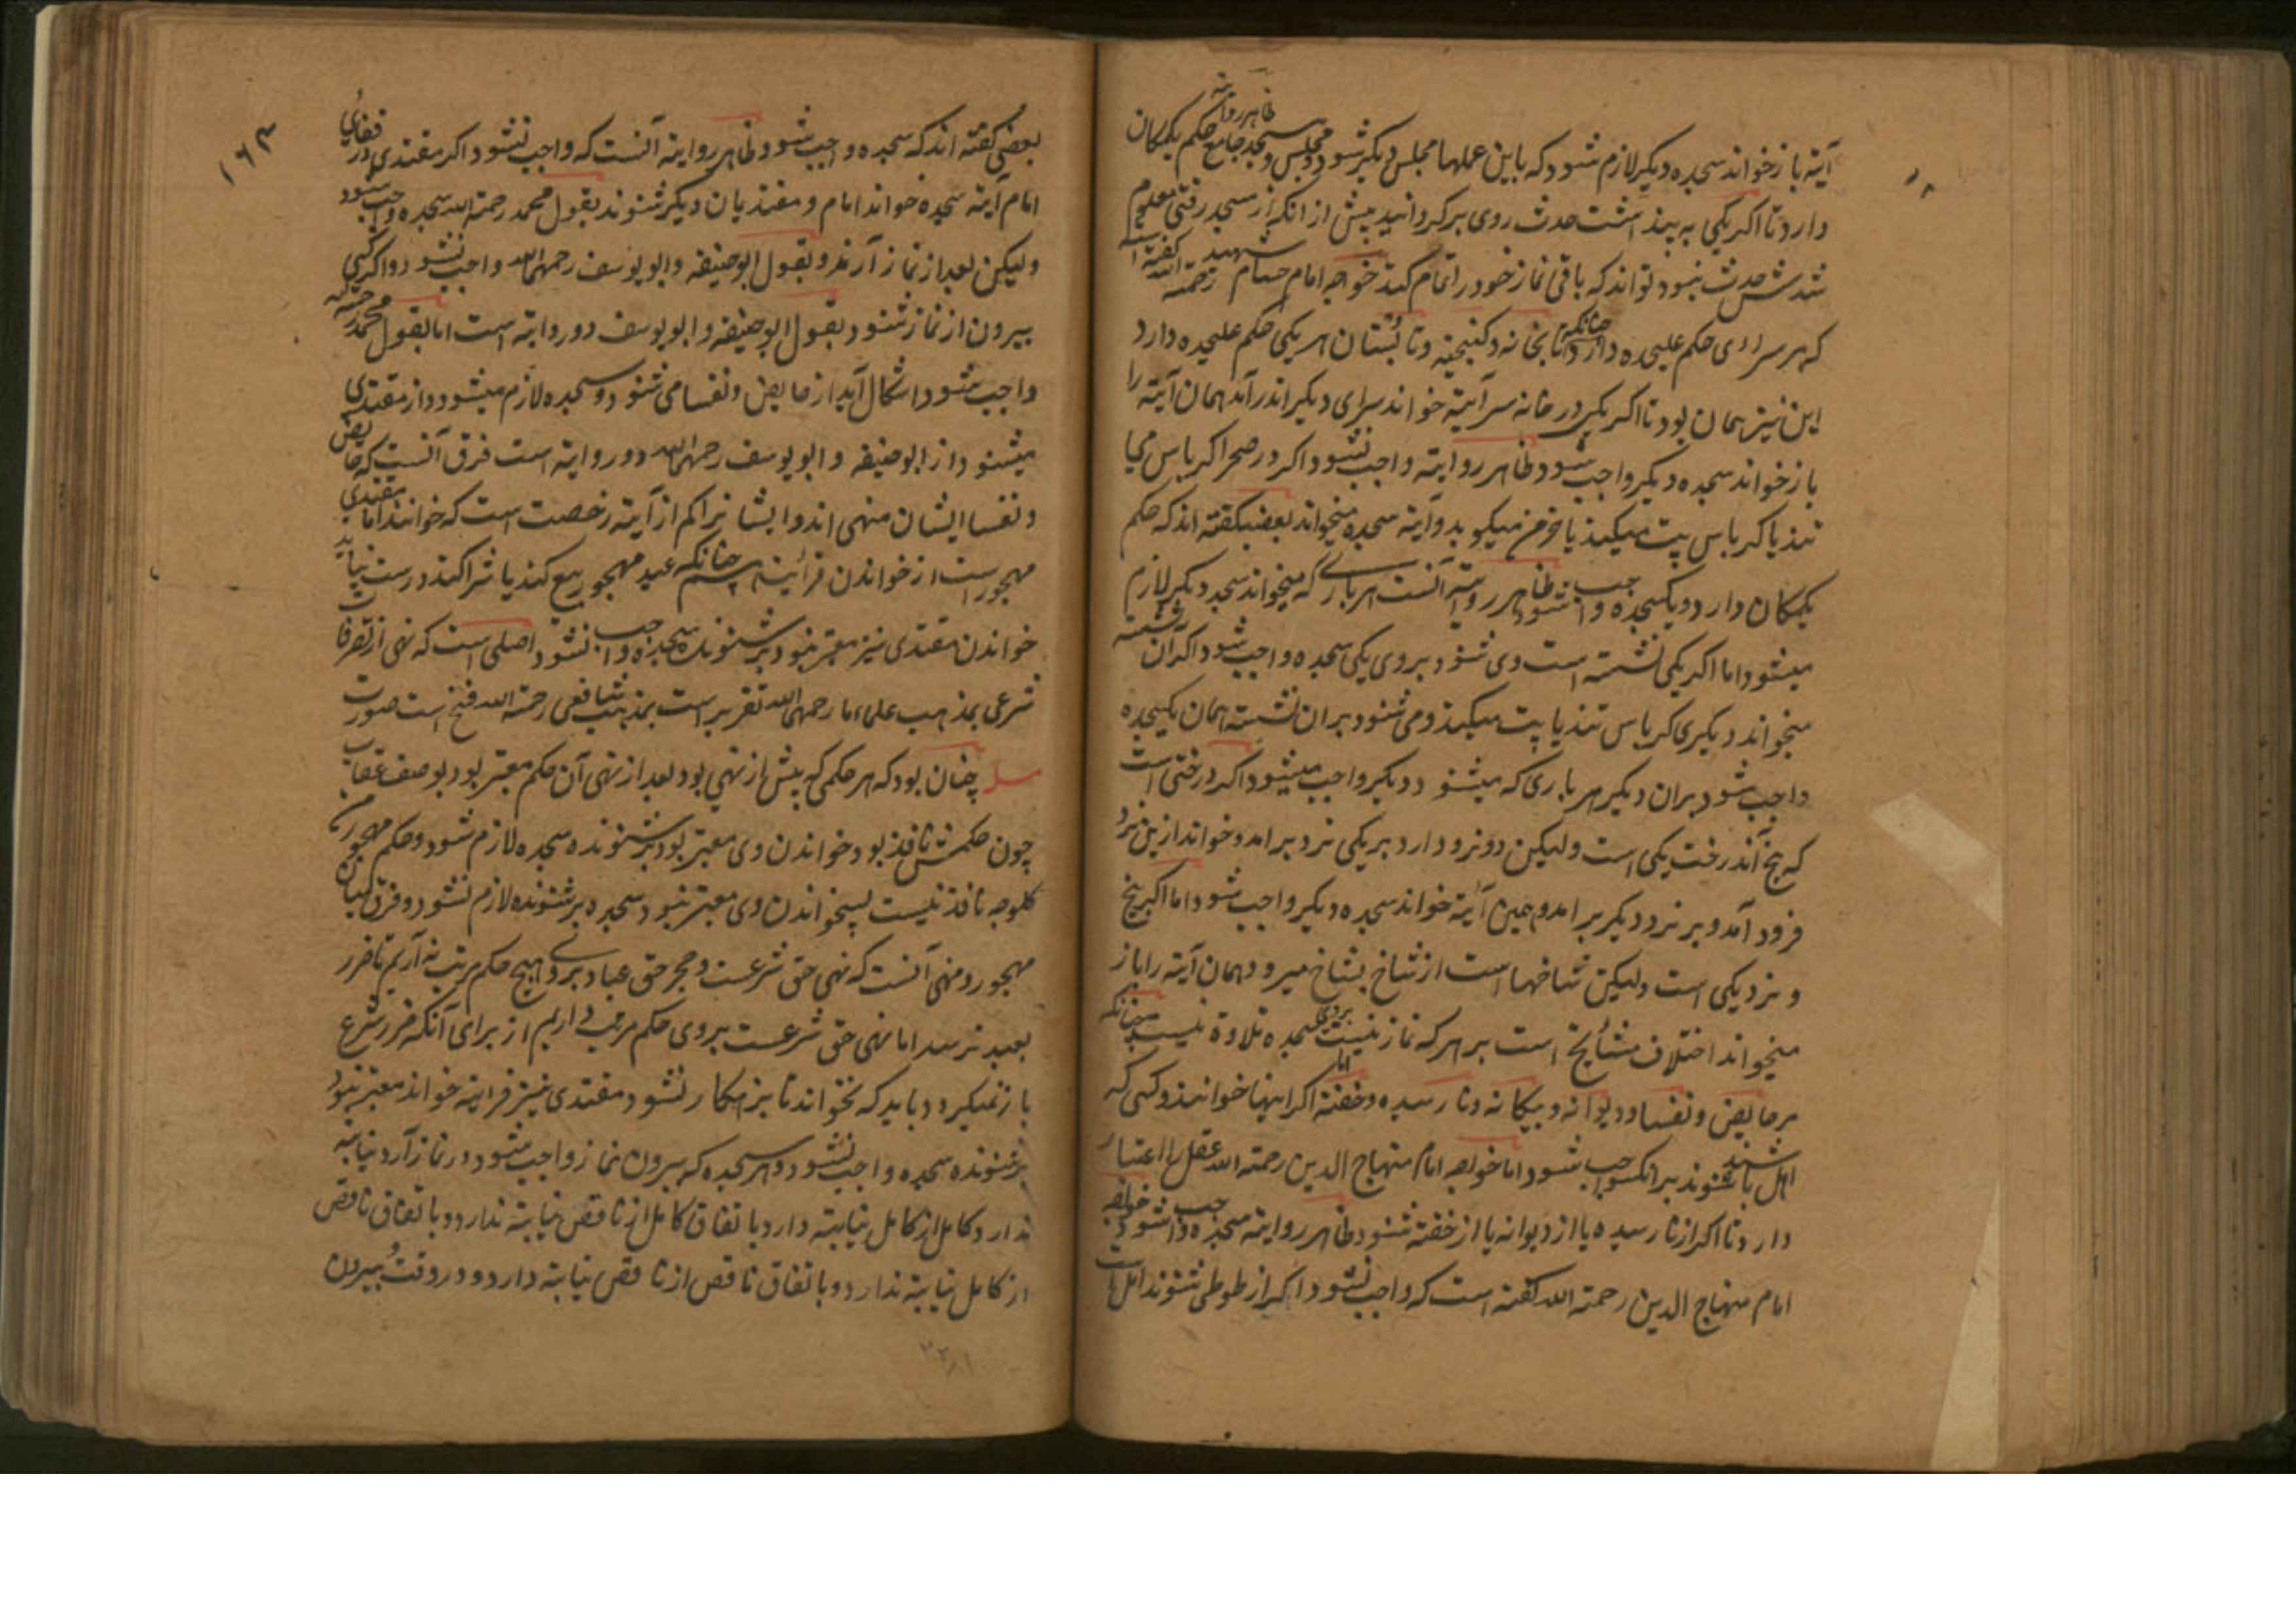 آیة باز خواند سجده دیگر لازم شود که باین عملها مجلس دیگر شود و مجلس و مسجد جامع حکم یکمکان
ظاهر روایة
دارد تا اگر یکی به پنداشت حدث روی بر گردانید پیش از انکه از مسجد رفتی معلوم
شدش حدث نبود تواند که باقی نماز خود را تمام کند خواجه امام حسام شهید رحمة الله گفته است
که هر سرای حکم علیحده دارد چنانکه تابخانه و گنجینه و تابستان هر یکی حکم علیحده دارد
این نیز همان بود تا اگر یکی در خانه سر آیة خواند سرای دیگر اندر آمد همان آیة را
باز خواند سجده دیگر واجب شود و ظاهر روایة واجب نشود اگر در صحرا کرباس می
تند یا کرباس پت میکند یا خرمن میکوبد و آیة سجده میخواند بعضی گفته اند که حکم
یکمکان دارد و یکسجده واجب شود ظاهر روایة آنست هر باری که میخواند سجده دیگر لازم
میشود اما اگر یکی نشسته است و می شنود بر وی یکی سجده واجب شود اگر آن نشسته
میخواند دیگری کرباس تند یا پت میکند و می شنود بران نشسته همان یکسجده
واجب شود بران دیگر هر باری که میشنود دیگر واجب میشود اگر درختی است
که بیخ آندرخت یکی است ولیکن دو نرد دارد بر یکی نرد بر امد و خواند ازین نرد
فرود آمد و بر نرد دیگر بر امد و همین آیة خواند سجده دیگر واجب شود اما اگر بیخ
و نرد یکی است ولیکن شاخها است از شاخ بشاخ میرود همان آیة را باز
میخواند اختلاف مشایخ است بر هر که نماز نیست بر وی سجده تلاوة نیست چنانکه
بر حایض و نفسا و دیوانه و بیگانه و نا رسیده و خفته اما اگر اینها خوانند و کسی که
اهل باشد شنوند بر انکس واجب شود اما خواجه امام منهاج الدین رحمة الله عقل را اعتبار
دارد تا اگر از نا رسیده یا از دیوانه یا از خفته شنود ظاهر روایة سجده واجب شود و خواجه
امام منهاج الدین رحمة الله گفته است که واجب نشود اگر از طوطی شنوند اهل است
۱۶۳
بعضی گفته اند که سجده واجب شود و ظاهر روایة آنست که واجب نشود اگر مقتدی در قفای
امام آیة سجده خواند امام و مقتدیان دیگر شنوند بقول محمد رحمة الله سجده واجب شود
ولیکن بعد از نماز آرند و بقول ابو حنیفه و ابو یوسف رحمهما الله واجب نشود و اگر کسی
بیرون از نماز شنود بقول ابو حنیفه و ابو یوسف دو روایة است اما بقول محمد رحمة الله
واجب شود اشکال آید از حایض و نفسا می شنود و سجده لازم میشود و از مقتدی
میشنود از ابو حنیفه و ابو یوسف رحمهما الله دو روایة است فرق آنست که حایض
و نفسا ایشان منهی اند و ایشانرا کم از آیة رخصت است که خوانند اما مقتدی
مهجور است از خواندن قرآیت چنانکه عبد مهجور بیع کند یا شرا کند درست نیاید
خواندن مقتدی نیز معتبر نبود بر شنونده سجده واجب نشود اصلی است که نهی از تصرفات
شرعی بمذهب علماء ما رحمهم الله تقریر است بمذهب شافعی رحمة الله فسخ است صورت
مسله چنان بود که هر حکمی که پیش از نهی بود بعد از نهی آن حکم معتبر بود بوصف عقاب
چون حکمش نافذ بود خواندن وی معتبر بود بر شنونده سجده لازم شود و حکم مهجور ن
کلوجه نافذ نیست پسخواندن وی معتبر نبود سجده بر شنونده لازم نشود و فرق میان
مهجور و منهی آنست که نهی حق شرعست و حجر حق عباد بر وی هیچ حکم مرتب نه آریم تا ضرر
بعبد نرسد اما نهی حق شرعست بر وی حکم مرتب داریم از برای آنکه ضرر شرع
باز نمیگردد باید که نخواند تا بزهکار نشود و مقتدی نیز قراینه خواند معتبر نبود
بر شنونده سجده واجب نشود و هر سجده که بیرون نماز واجب شود در نماز آرد نیابة
ندارد و کامل از کامل نیابة دارد باتفاق کامل از ناقص نیابة ندارد و باتفاق ناقص
از کامل نیابة ندارد و باتفاق ناقص از ناقص نیابة دارد و در وقت بیرون